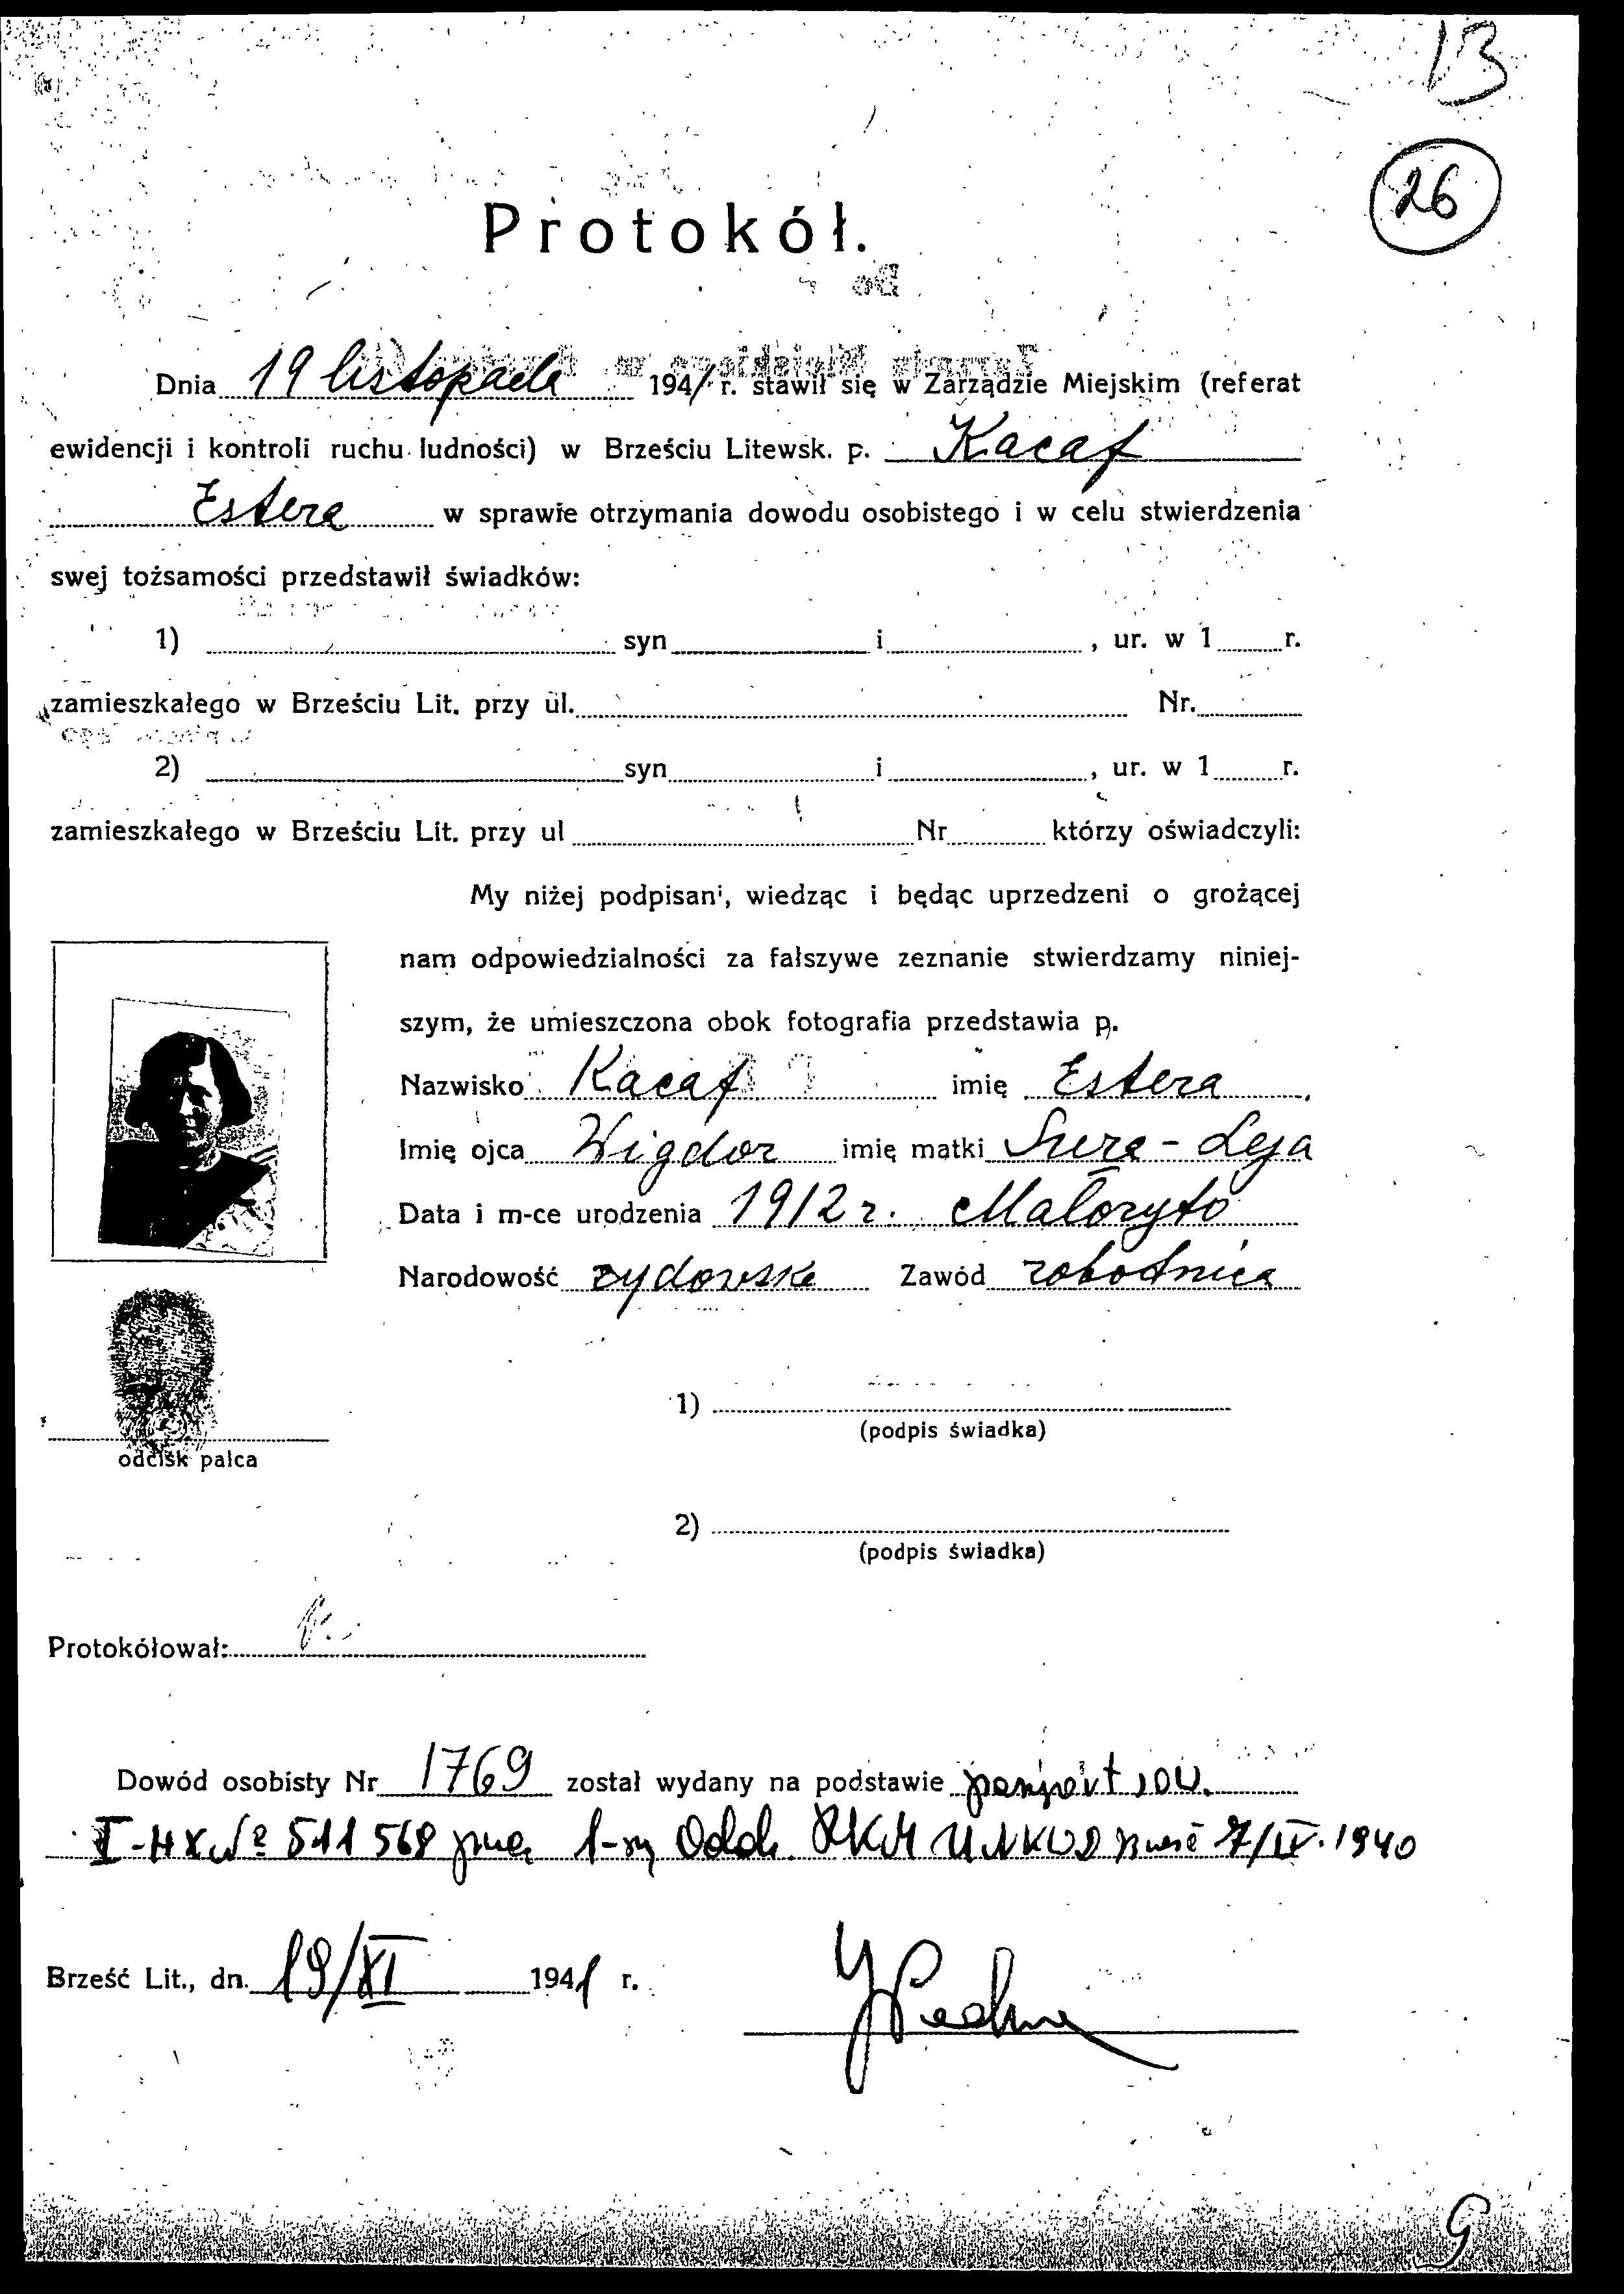 13
26
Protokół.
Dnia 19 listopada 1941 r. stawił się w Zarządzie Miejskim (referat
ewidencji i kontroli ruchu ludności) w Brześciu Litewsk. p. Kacaf
Estera w sprawie otrzymania dowodu osobistego i w celu stwierdzenia
swej tożsamości przedstawił świadków:
1) syn i , ur. w 1 r.
zamieszkałego w Brześciu Lit. przy ul. Nr.
2) syn i , ur. w 1 r.
zamieszkałego w Brześciu Lit. przy ul Nr którzy oświadczyli:
My niżej podpisani, wiedząc i będąc uprzedzeni o grożącej
nam odpowiedzialności za fałszywe zeznanie stwierdzamy niniej-
szym, że umieszczona obok fotografia przedstawia p.
Nazwisko Kacaf imię Estera,
Imię ojca Wigdor imię matki Sura-Leja
Data i m-ce urodzenia 1912 r. Małoryto
Narodowość żydowska Zawód robotnica
1)
(podpis świadka)
odcisk palca
2)
(podpis świadka)
Protokółował:
Dowód osobisty Nr 1769 został wydany na podstawie paszport sow.
I-HX № 511568 1-szy Oddz. RKM UNKWD 7/IV.1940
Brześć Lit., dn. 19/XI 1941 r.
9